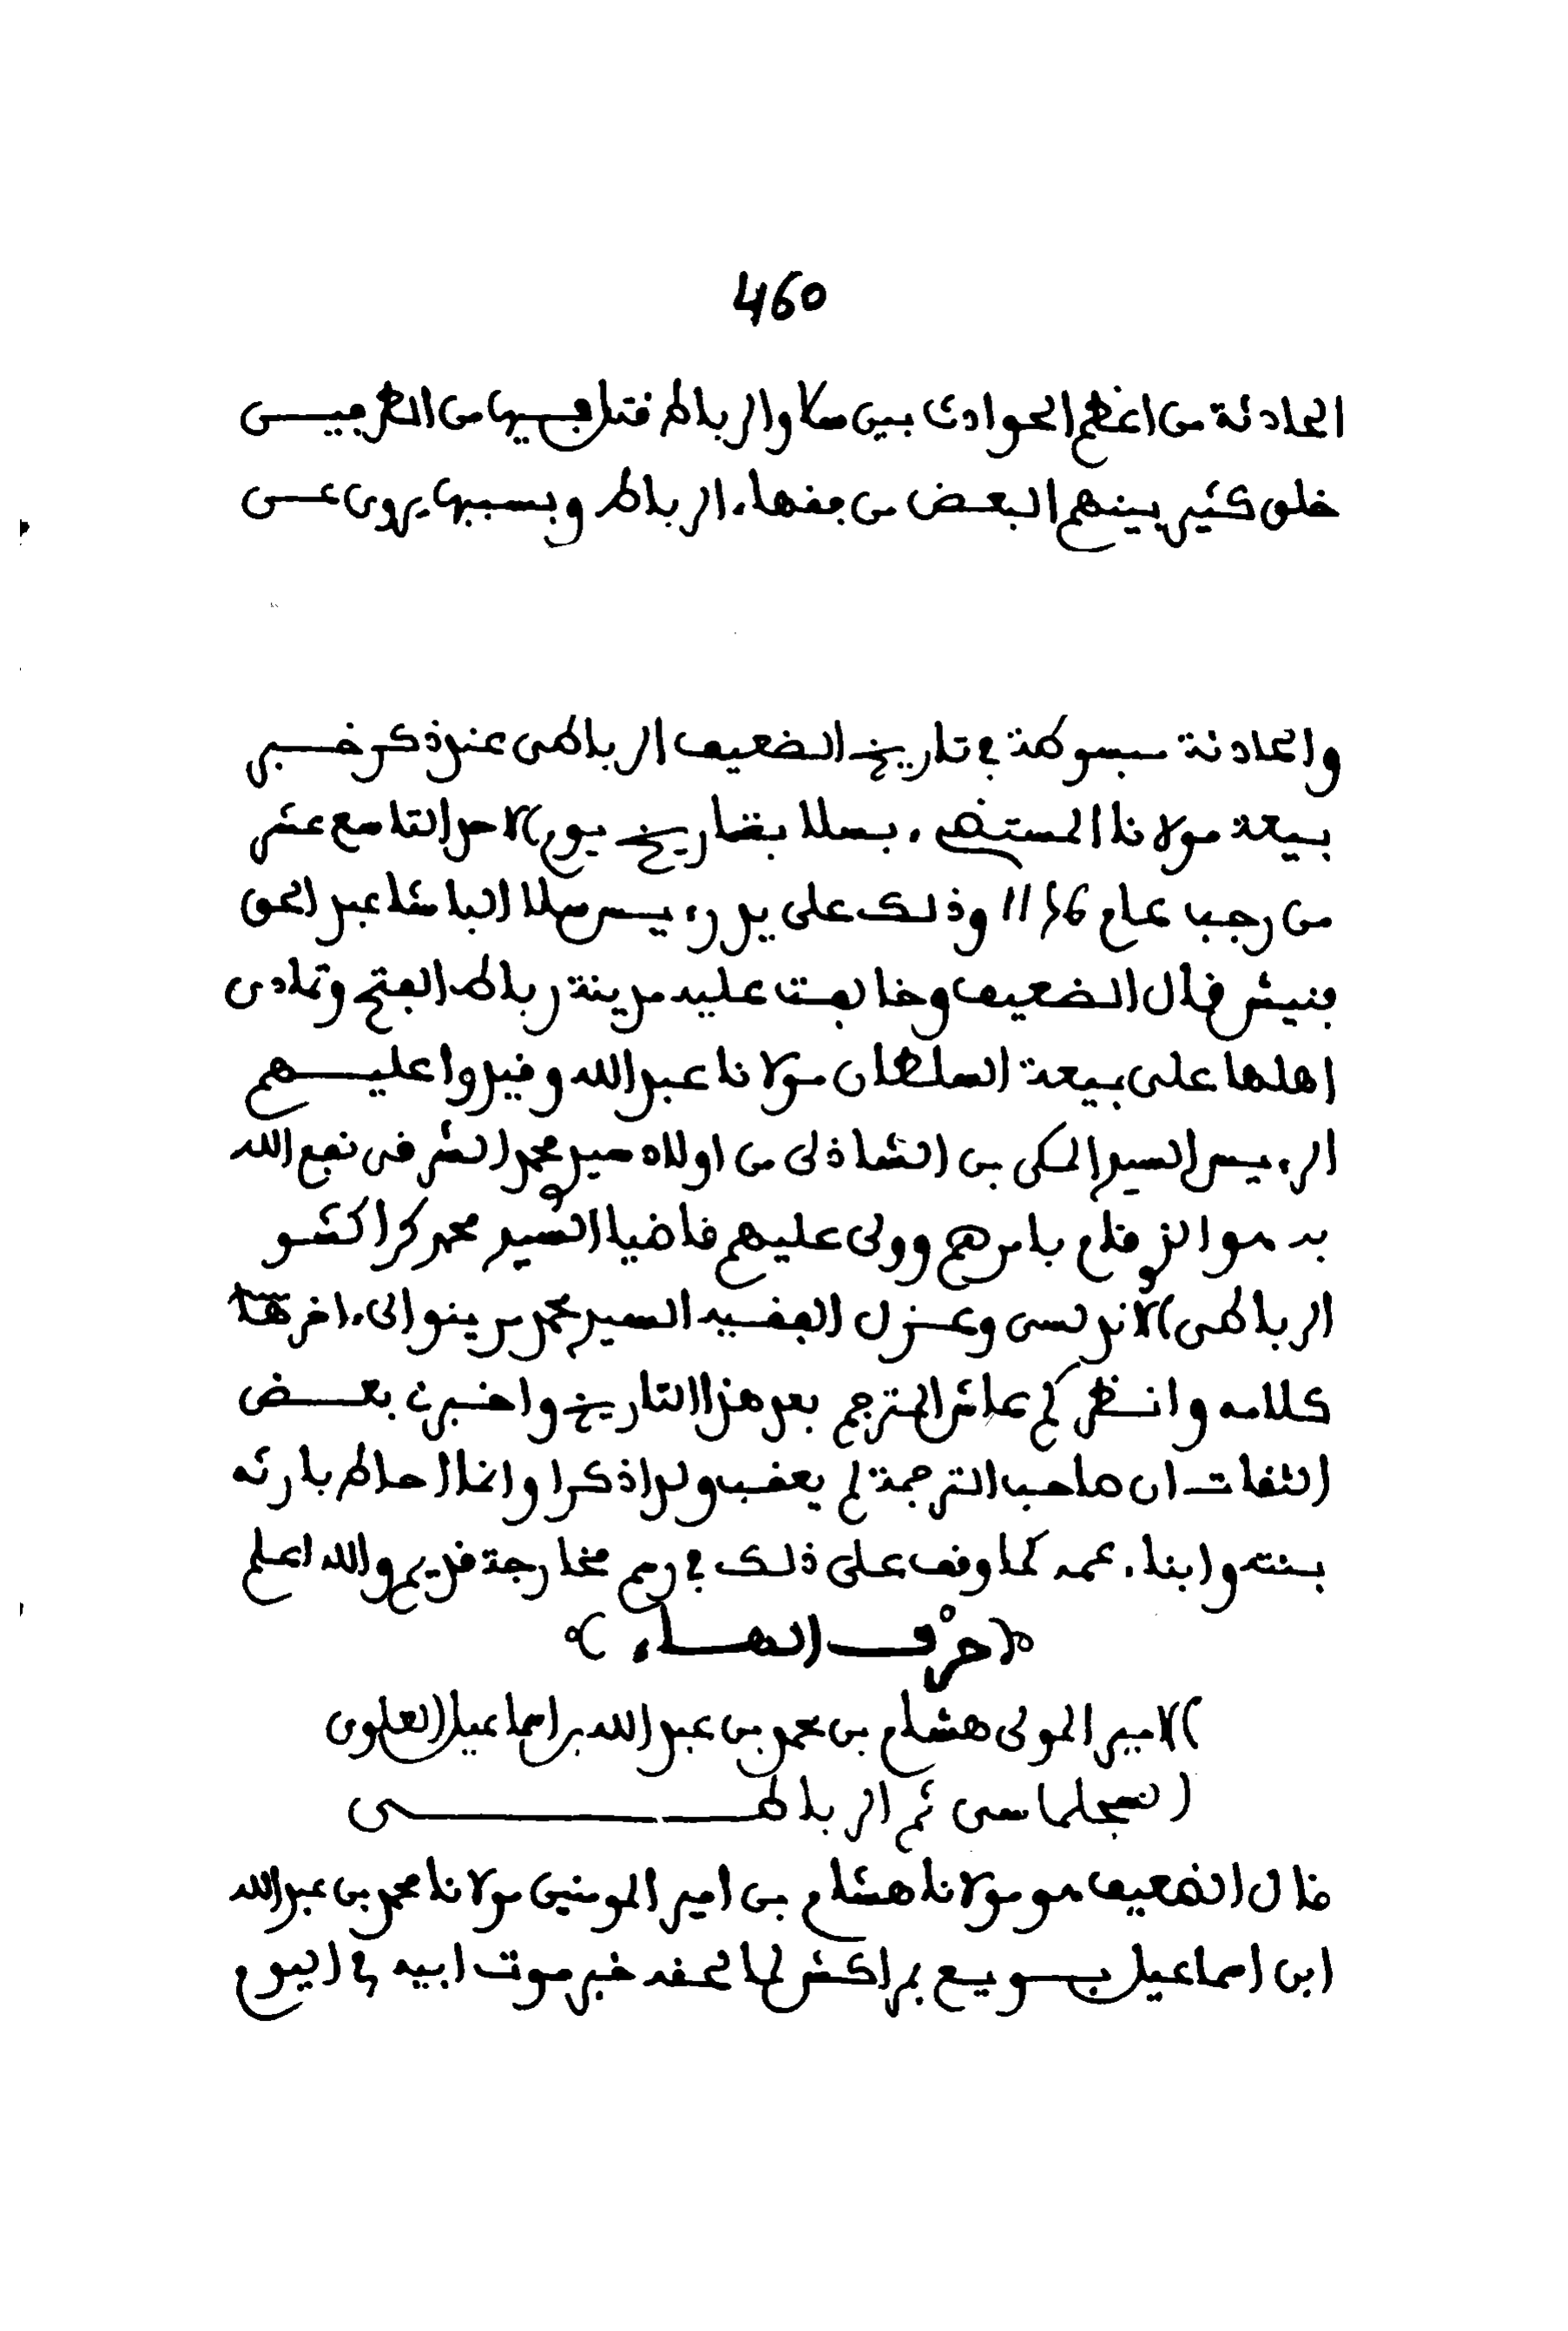 460
الحادثة من اعظم الحوادث بين سلا والرباط قتل فيها من الطرفين
خلق كثير بينهم البعض من فقهاء الرباط وبسببها يروى عن
والحادثة مبسوطة في تاريخ الضعيف الرباطي عند ذكر خبر
بيعة مولانا المستضيء بسلا بتاريخ يوم الاحد التاسع عشر
من رجب عام 1156 وذلك على يد رءيس سلا الباشا عبد الحق
فنيش قال الضعيف وخالفت عليه مدينة رباط الفتح وتمادى
اهلها على بيعة السلطان مولانا عبد الله وقيدوا عليهم
الرءيس السيد المكي بن الشاذلي من اولاد سيد محمد الشرقي نفع الله
به هو الذي قام بامرهم وولى عليهم قاضيا السيد محمد كراكشو
الرباطي الاندلسي وعزل الفقيه السيد محمد مرينو الى ءاخر هنا
كلامه وانظر كم عاش المترجم بعد هذا التاريخ واخبرني بعض
الثقات ان صاحب الترجمة لم يعقب ولدا ذكرا وانما احاط بارثه
بنته وابناء عمه كما وقف على ذلك في رسم مخارجة قديم والله اعلم
(حرف الهاء)
الامير المولى هشام بن محمد بن عبد الله بن اسماعيل العلوي
السجلماسي ثم الرباطي
قال الضعيف هو مولانا هشام بن امير المومنين مولانا محمد بن عبد الله
ابن اسماعيل بويع بمراكش لما لحقه خبر موت ابيه في اليوم